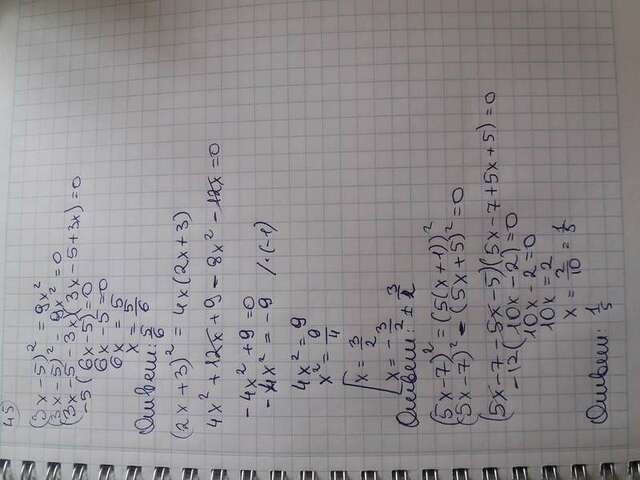 45
(3x-5)² = 9x²
(3x-5)² - 9x² = 0
(3x-5-3x)(3x-5+3x)=0
-5(6x-5)=0
6x-5=0
6x = 5
x = 5/6
Ответ: 5/6
(2x+3)² = 4x(2x+3)
4x² + 12x + 9 - 8x² - 12x = 0
-4x² + 9 = 0
-4x² = -9 /·(-1)
4x² = 9
x² = 9/4
[x = 3/2
x = -3/2
Ответ: ± 3/2
(5x-7)² = (5(x+1))²
(5x-7)² - (5x+5)² = 0
(5x-7-5x-5)(5x-7+5x+5)=0
-12(10x-2)=0
10x-2=0
10x=2
x = 2/10 = 1/5
Ответ: 1/5